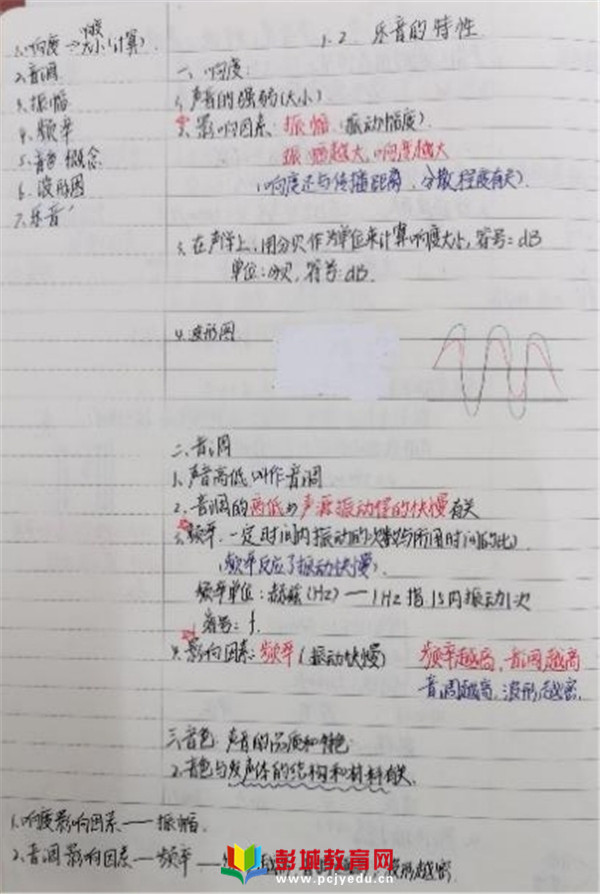 1.2 乐音的特性
1.响度→响度
大小(计算).
2.音调
3.振幅
4.频率
5.音色 概念
6.波形图
7.乐音
一、响度:
1.声音的强弱(大小)
2.影响因素:振幅(振动幅度).
振幅越大,响度越大
(响度还与传播距离,分散程度有关)
3.在声学上,用分贝作为单位来计算响度大小,符号=dB
单位:分贝,符号:dB.
4.波形图
二.音调
1.声音高低叫作音调
2.音调的高低与声源振动的快慢有关
3.频率.一定时间内振动的次数与所用时间的比
(频率反应了振动快慢).
频率单位:赫兹(HZ)——1HZ指1S内振动1次
符号:f.
4.影响因素:频率(振动快慢)
频率越高,音调越高
音调越高,波形越密.
三.音色:声音的品质和特色
2.音色与发声体的结构和材料有关.
1.响度影响因素——振幅.
2.音调影响因素——频率——
波形越密.
彭城教育网
www.pcjyedu.cn